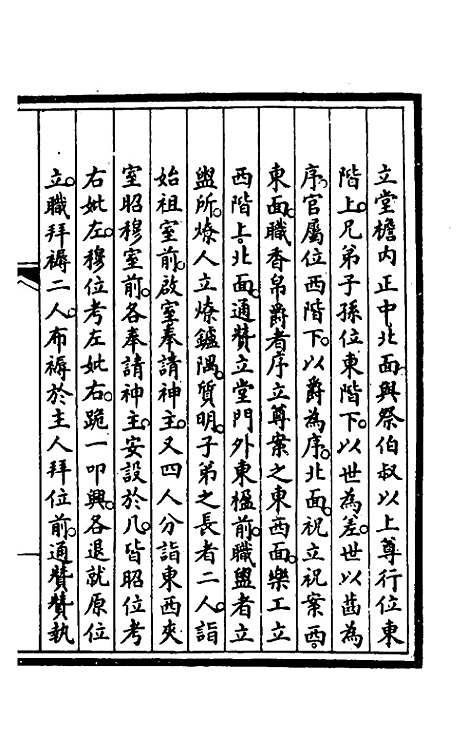 立堂檐內正中北面。與祭伯叔以上尊行位東
階上。兄弟子孫位東階下。以世為差。世以齒為
序。官屬位西階下。以爵為序。北面。祝立祝案西。
東面。職香帛爵者序立尊案之東西面。樂工立
西階上。北面。通贊立堂門外東楹前。職盥者立
盥所。燎人立燎鑪隅。質明。子弟之長者二人。詣
始祖室前。啟室奉請神主。又四人分詣東西夾
室昭穆室前。各奉請神主。安設於几。皆昭位考
右妣左。穆位考左妣右。跪一叩興。各退就原位
立。職拜褥二人。布褥於主人拜位前。通贊贊執